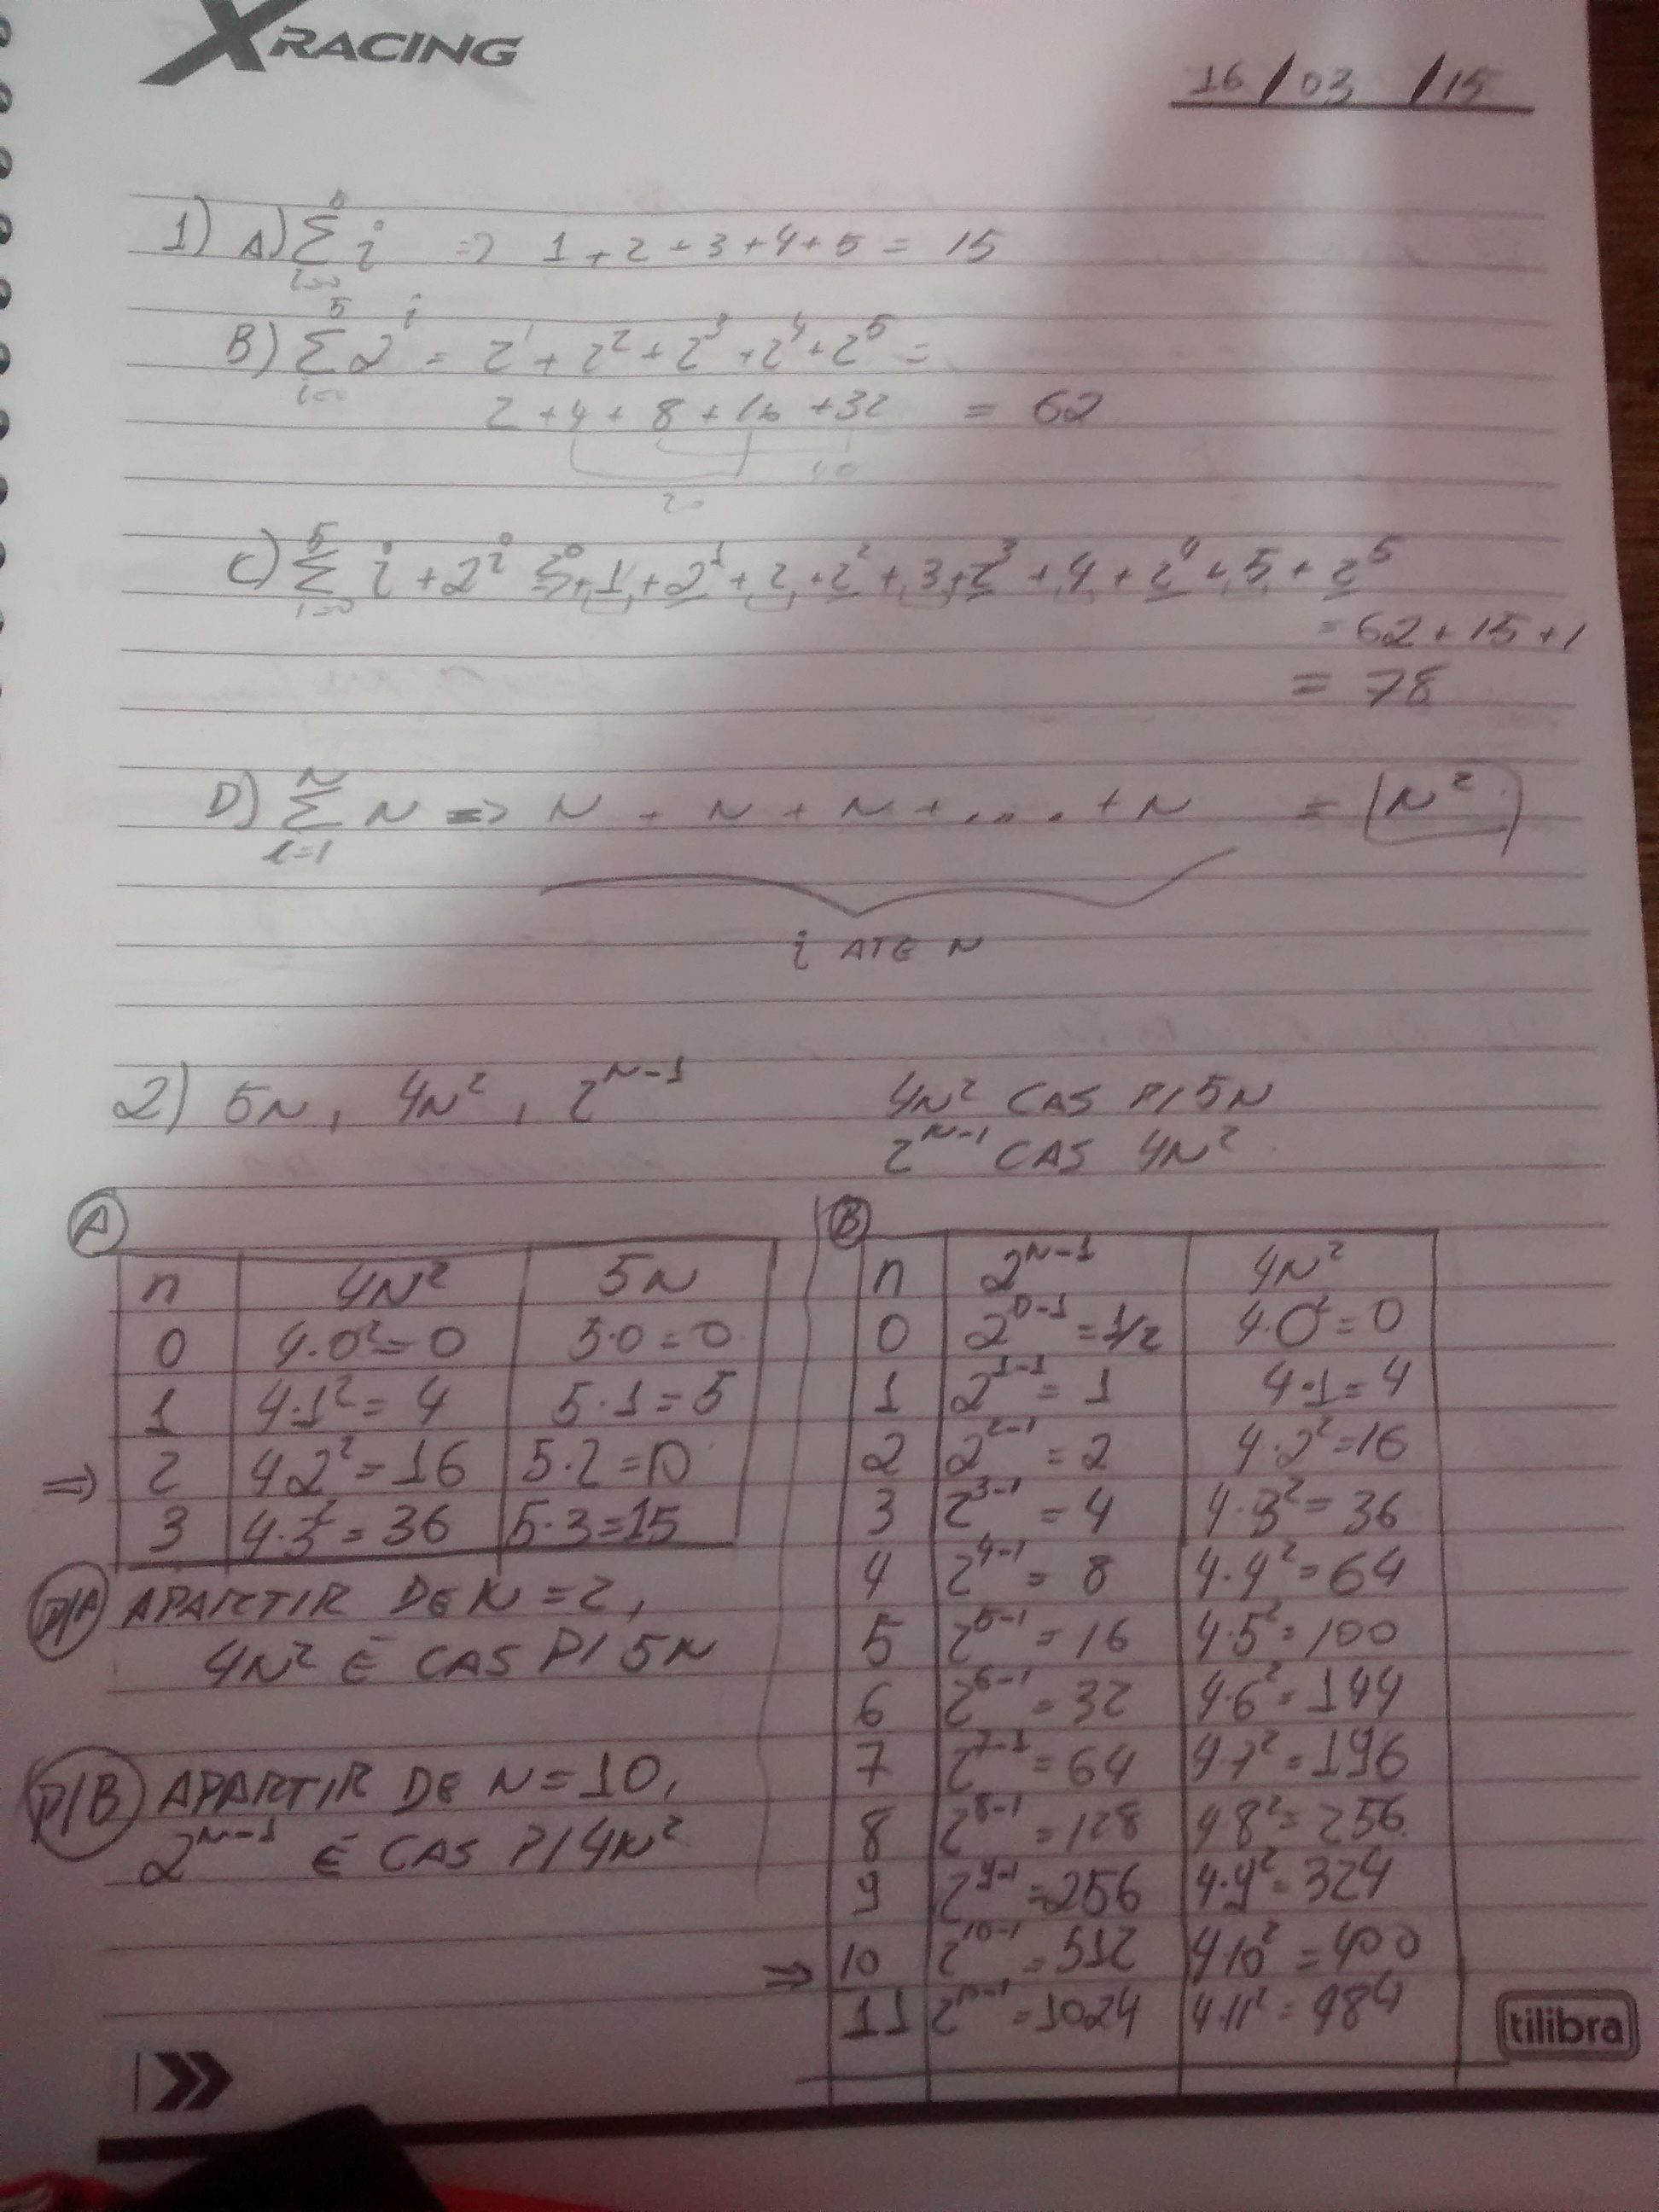 X RACING
16/03/15
1) A) Σ i => 1+2+3+4+5 = 15
i=0
5 i
B) Σ 2 = 2¹ + 2² + 2³ + 2⁴ + 2⁵ =
i=0
2 + 4 + 8 + 16 + 32 = 62
40
20
5
C) Σ i + 2ⁱ => 2⁰ + 1 + 2¹ + 2 + 2² + 3 + 2³ + 4 + 2⁴ + 5 + 2⁵
i=0
= 62 + 15 + 1
= 78
N
D) Σ N => N + N + N + .... + N = N²
i=1
i ATE N
2) 5N, 4N², 2^N-1 4N² CAS P/ 5N
2^N-1 CAS 4N²
A
n 4N² 5N
0 4.0²=0 5.0=0
1 4.1²=4 5.1=5
=> 2 4.2²=16 5.2=10
3 4.3²=36 5.3=15
P/A APARTIR DE N=2,
4N² É CAS P/ 5N
P/B APARTIR DE N=10,
2^N-1 É CAS P/ 4N²
B
n 2^N-1 4N²
0 2^0-1=1/2 4.0²=0
1 2^1-1=1 4.1=4
2 2^2-1=2 4.2²=16
3 2^3-1=4 4.3²=36
4 2^4-1=8 4.4²=64
5 2^5-1=16 4.5²=100
6 2^6-1=32 4.6²=144
7 2^7-1=64 4.7²=196
8 2^8-1=128 4.8²=256
9 2^9-1=256 4.9²=324
=> 10 2^10-1=512 4.10²=400
11 2^11-1=1024 4.11²=484
tilibra